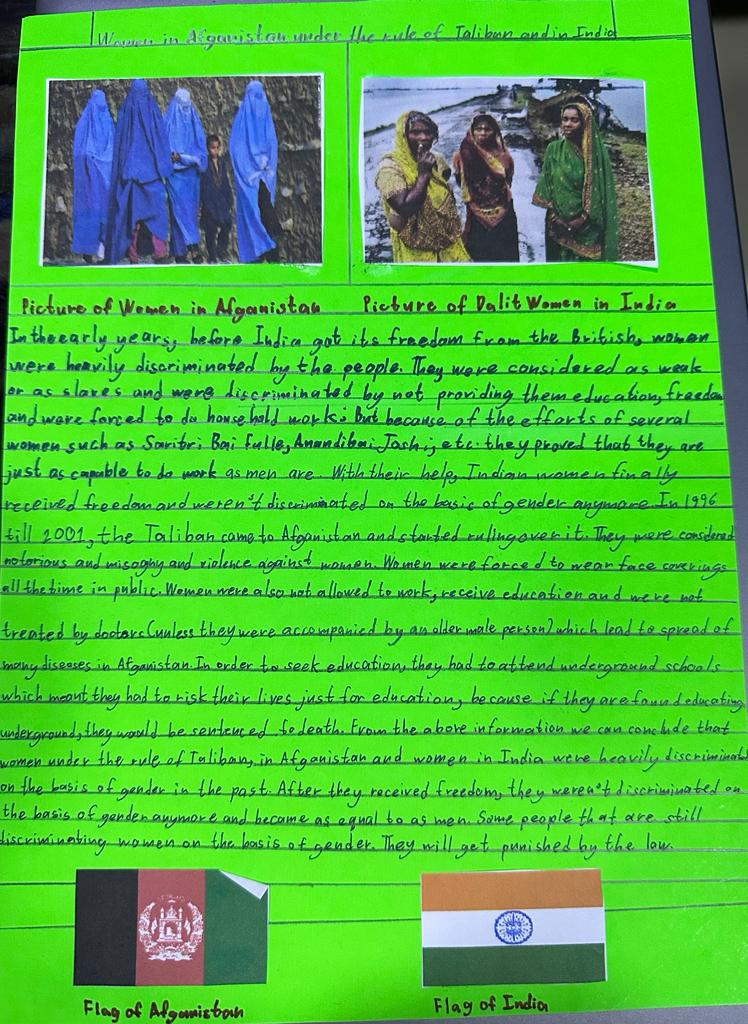 Women in Afganistan under the rule of Taliban and in India
Picture of Women in Afganistan Picture of Dalit Women in India
In the early years, before India got its freedom from the British, women
were heavily discriminated by the people. They were considered as weak
or as slaves and were discriminated by not providing them education, freedom
and were forced to do household work. But because of the efforts of several
women such as Saritri Bai Fulle, Anandibai Joshi, etc. they proved that they are
just as capable to do work as men are. With their help, Indian women finally
received freedom and weren't discriminated on the basic of gender anymore. In 1996
till 2001, the Taliban came to Afganistan and started ruling over it. They were considered
notorious and misogny and violence against women. Women were forced to wear face coverings
all the time in public. Women were also not allowed to work, receive education and were not
treated by doctors (unless they were accompanied by an older male person) which lead to spread of
many diseases in Afganistan. In order to seek education, they had to attend underground schools
which meant they had to risk their lives just for education, because if they are found educating
underground, they would be sentenced to death. From the above information we can conclude that
women under the rule of Taliban, in Afganistan and women in India were heavily discriminated
on the basis of gender in the past. After they received freedom, they weren't discriminated on
the basis of gender anymore and became as equal to as men. Some people that are still
discriminating women on the basis of gender. They will get punished by the law.
Flag of Afganistan Flag of India